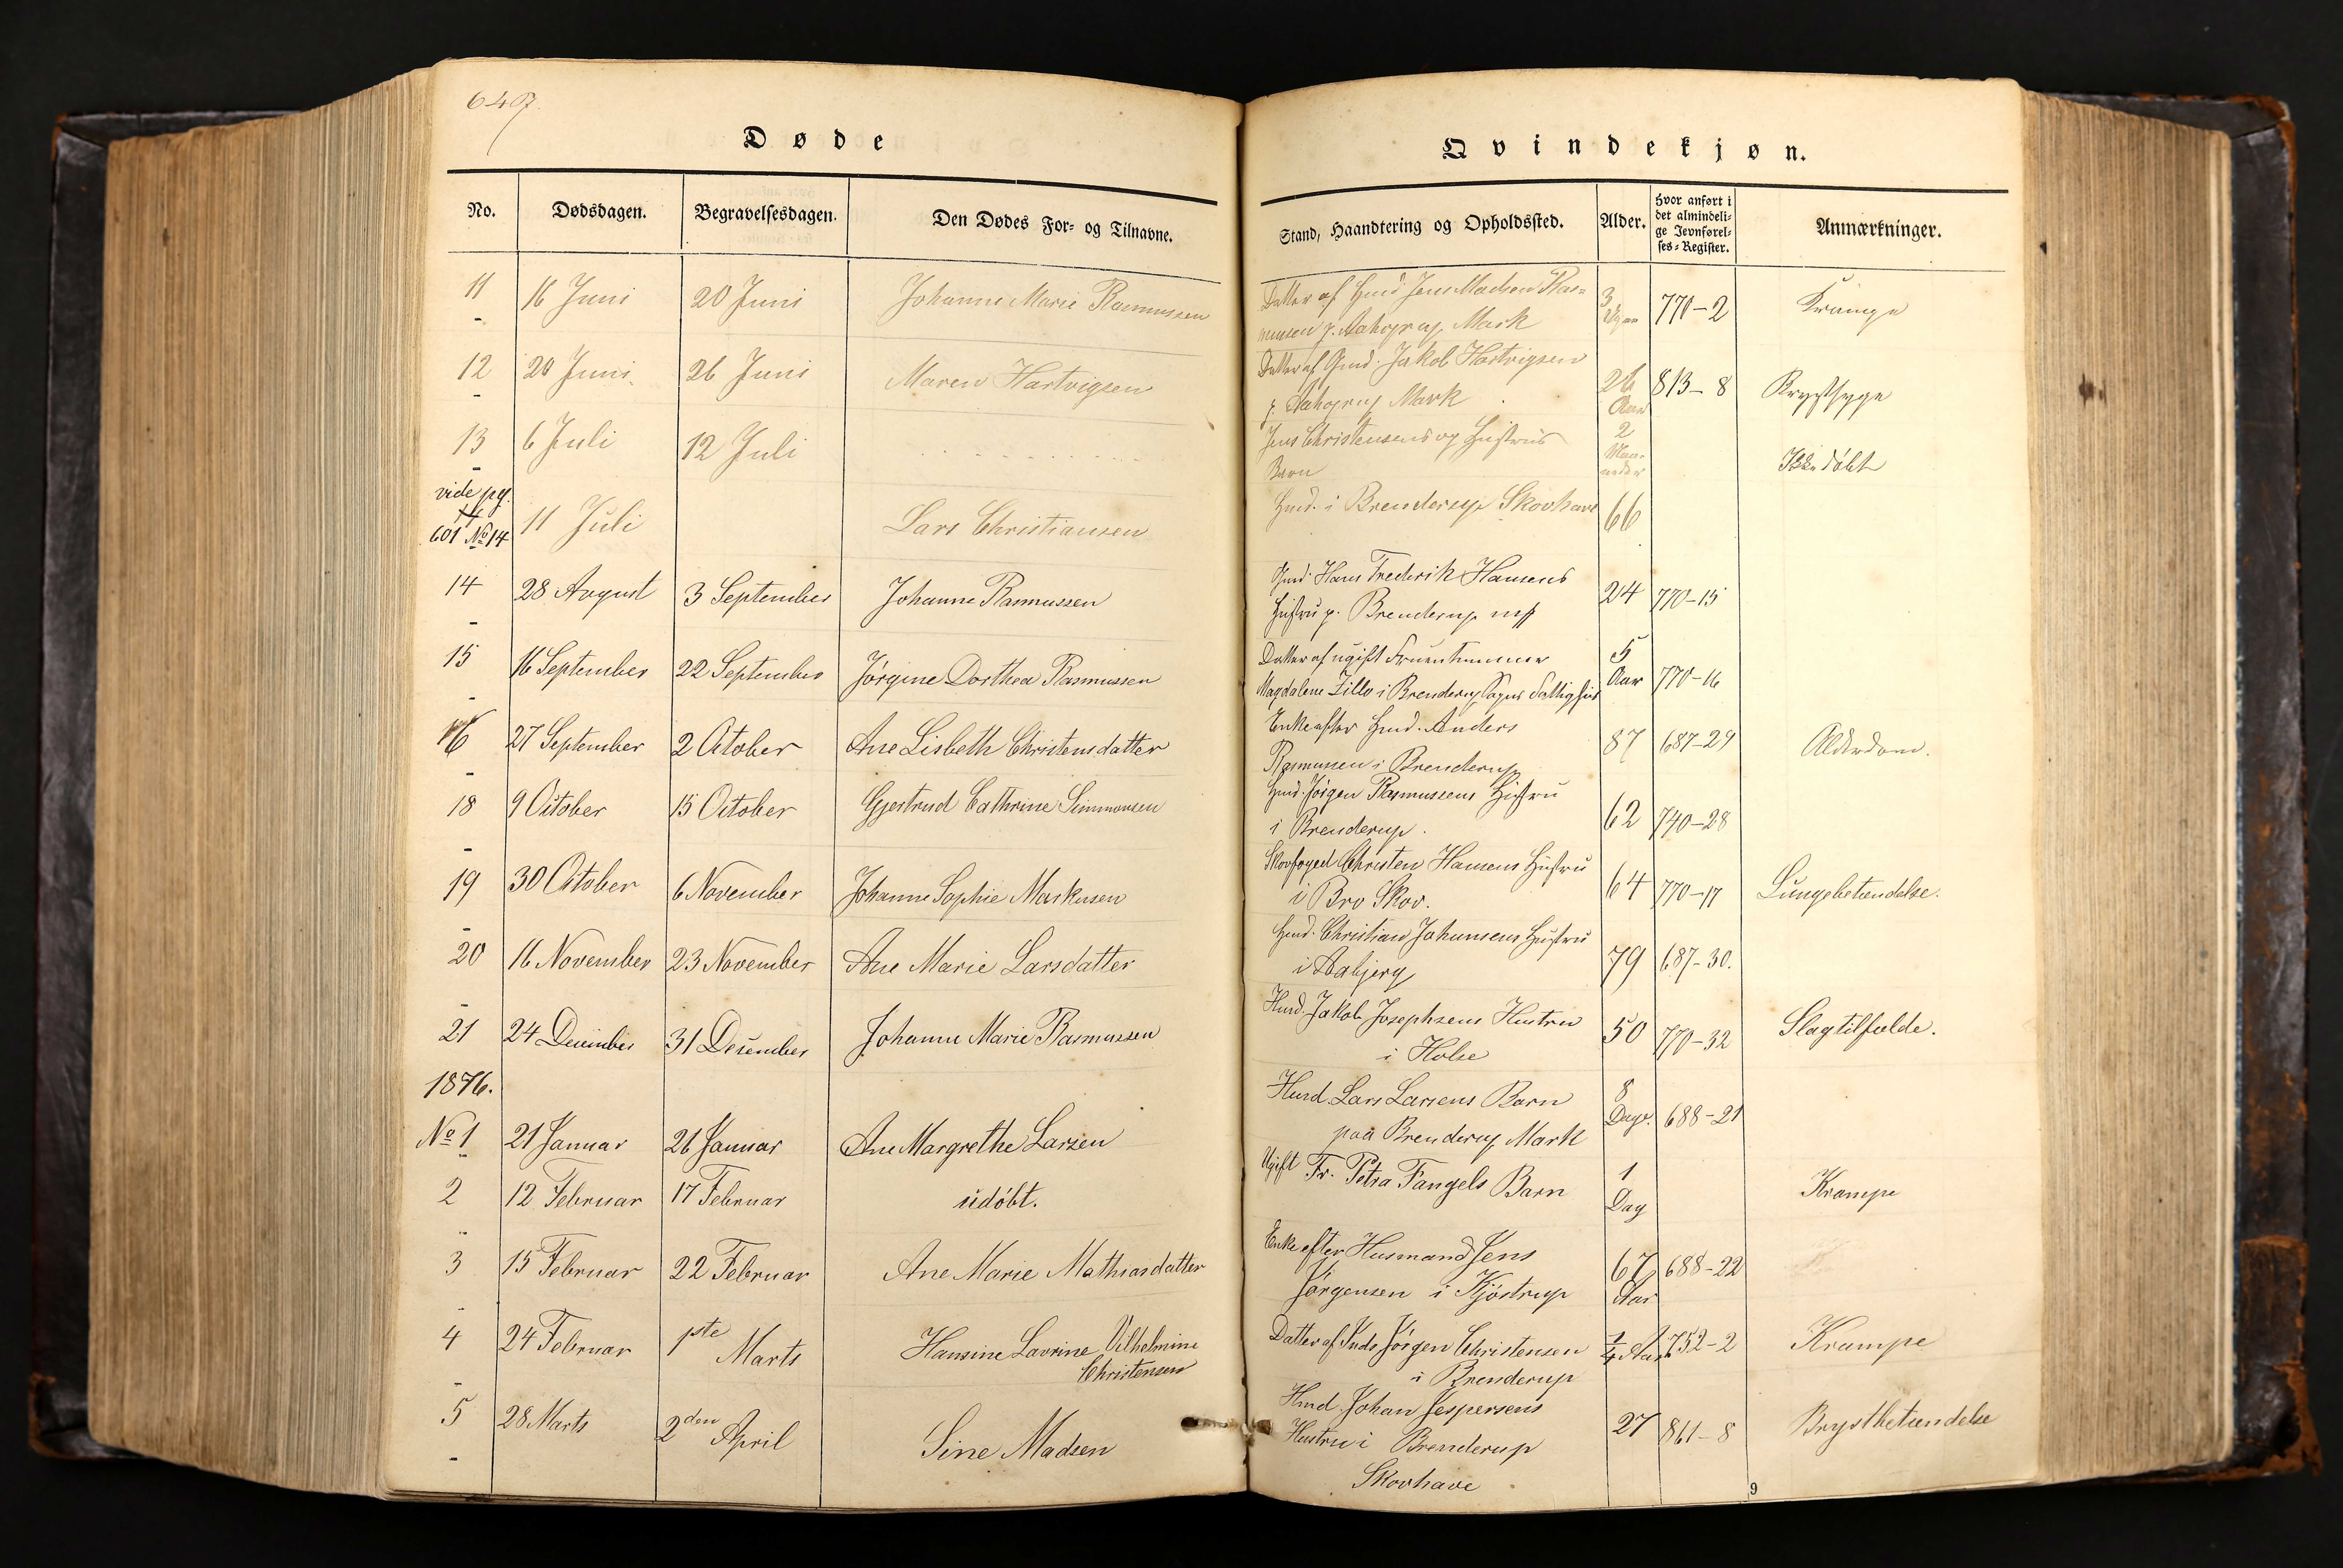 647.
Døde
Qvindekjøn.
No. Dødsdagen. Begravelsesdagen. Den Dødes For- og Tilnavne. Stand, Haandtering og Opholdssted. Alder. Hvor anført i det almindelige Jevnførelses-Register. Anmærkninger.
11 16 Juni 20 Juni Johanne Marie Rasmussen
Datter af Hmd Jens Madsen Ras-
mussen p. Mark
3 770-2 Krampe
12 20 Juni 26 Juni Maren Hartvigsen
Datter af Gmd. Jakob Hartvigsen
p. Mark
26 Aar 813-8 Brystsyge
13 6 Juli 12 Juli
Jens Christensens og Hustrus
Barn
2 Maa-
neder
Ikke døbt
vide pg.
601 No 14 11 Juli Lars Christiansen
Hmd. i Brenderup Skovhave 66
14 28 August 3 September Johanne Rasmussen
Gmd. Hans Frederik Hansens
Hustru p. Brenderup
24 770-15
15 16 September 22 September Jørgine Dorthea Rasmussen
Datter af ugift Fruentimmer
Magdalene Zille i Brenderup Sogns Fattighus
5 Aar 770-16
16 27 September 2 October Ane Lisbeth Christensdatter
Enke efter Hmd. Anders
Rasmussen i Brenderup
87 687-29 Alderdom.
18 9 October 15 October Gjertrud Cathrine Simmonsen
Hmd. Jørgen Rasmussens Hustru
i Brenderup.
62 740-28
19 30 October 6 November Johanne Sophie Markusen
Skovfoged Christen Hansens Hustru
i Bro Skov.
64 770-17 Lungebetændelse.
20 16 November 23 November Ane Marie Larsdatter
Hmd. Christian Johansens Hustru
i Aabjerg
79 687-30.
21 24 December 31 December Johanne Marie Rasmussen
Hmd. Jakob Josephsens Hustru
i Holse
50 770-32 Slagtilfælde.
1876.
No 1 21 Januar 26 Januar Ane Margrethe Larsen
Hmd. Lars Larsens Barn
paa Brenderup Mark
8 Dage. 688-21
2 12 Februar 17 Februar udøbt.
Ugift Fr. Petra Fangels Barn
1 Dag Krampe
3 15 Februar 22 Februar Ane Marie Mathiasdatter
Enke efter Husmand Jens
Jørgensen i Kjøstrup
67 Aar 688-22
4 24 Februar 1ste Marts Hansine Lavrine Vilhelmine
Christensen
Datter af Inds. Jørgen Christensen
i Brenderup
1/4 Aar 752-2 Krampe
5 28 Marts 2den April Sine Madsen
Hmd. Johan Jespersens
Hustru i Brenderup
Skovhave
27 861-8 Brystbetændelse
9